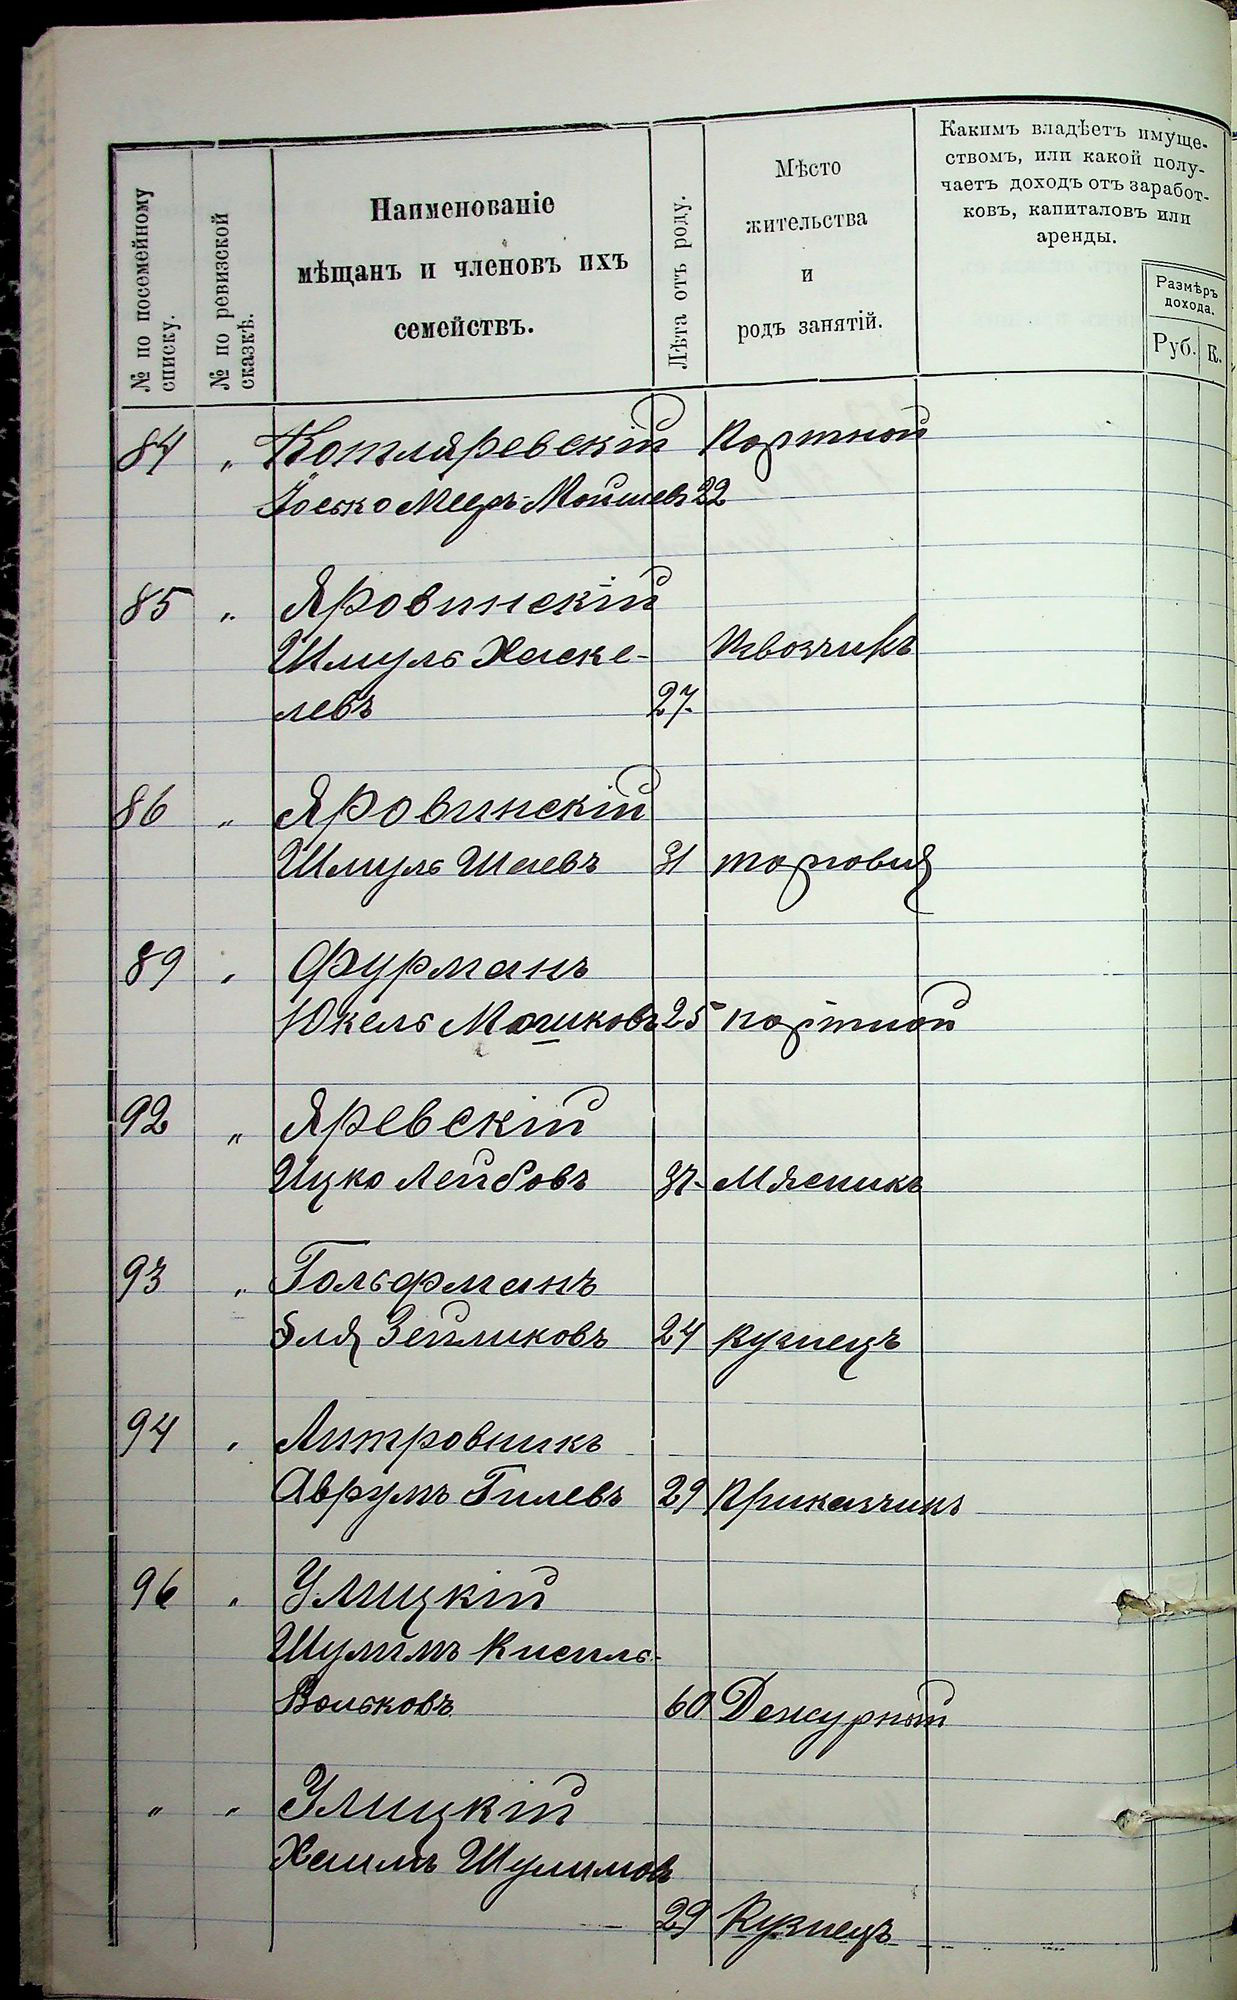 № по посемейному списку.
№ по ревизской сказкѣ.
Наименованіе
мѣщанъ и членовъ ихъ
семействъ.
Лѣта отъ роду.
Мѣсто
жительства
и
родъ занятій.
Какимъ владѣетъ имуще-
ствомъ, или какой полу-
чаетъ доходъ отъ заработ-
ковъ, капиталовъ или
аренды.
Размѣръ
дохода.
Руб. К.
84 " Котляревскій Портной
Іосько Меер-Мошков 22
85 " Яровинскій
Шмуль Хаске- Извозчикъ
левъ 27
86 " Яровинскій
Шмуль Шаевъ 31 торговля
89 " Фурманъ
Юкель Мошковъ 25 портной
92 " Яревскій
Ицко Лейбовъ 37 Мясникъ
93 " Гольфманъ
Эля Зейликовъ 24 кузнецъ
94 " Литровникъ
Аврумъ Гилевъ 29 Приказчикъ
96 " Улицкій
Шулимъ Кисиль-
Вольковъ 60 Дежурный
" " Улицкій
Хаимъ Шулимов
29 Кузнецъ